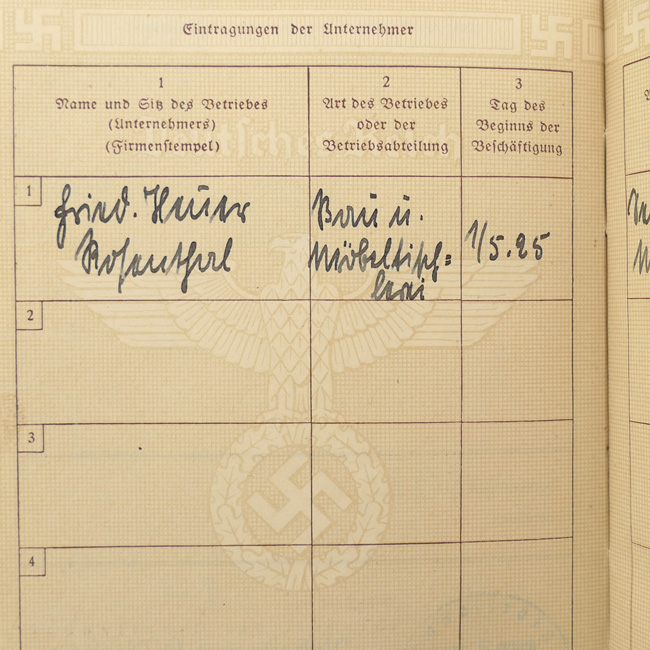 Eintragungen der Unternehmer
1
Name und Sitz des Betriebes
(Unternehmers)
(Firmenstempel)
2
Art des Betriebes
oder der
Betriebsabteilung
3
Tag des
Beginns der
Beschäftigung
1
Fried. Heuer
Rosenthal
Bau u.
Möbeltisch=
lerei
1/5.25
2
3
4